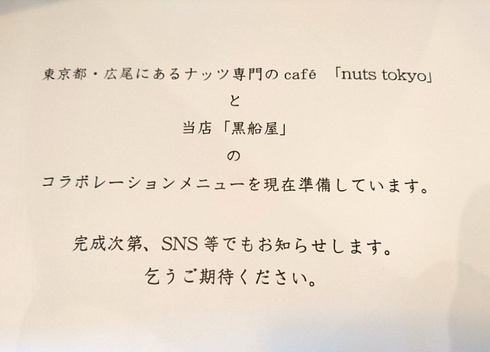 東京都・広尾にあるナッツ専門の café 「nuts tokyo」
と
当店「黒船屋」
の
コラボレーションメニューを現在準備しています。
完成次第、SNS 等でもお知らせします。
乞うご期待ください。